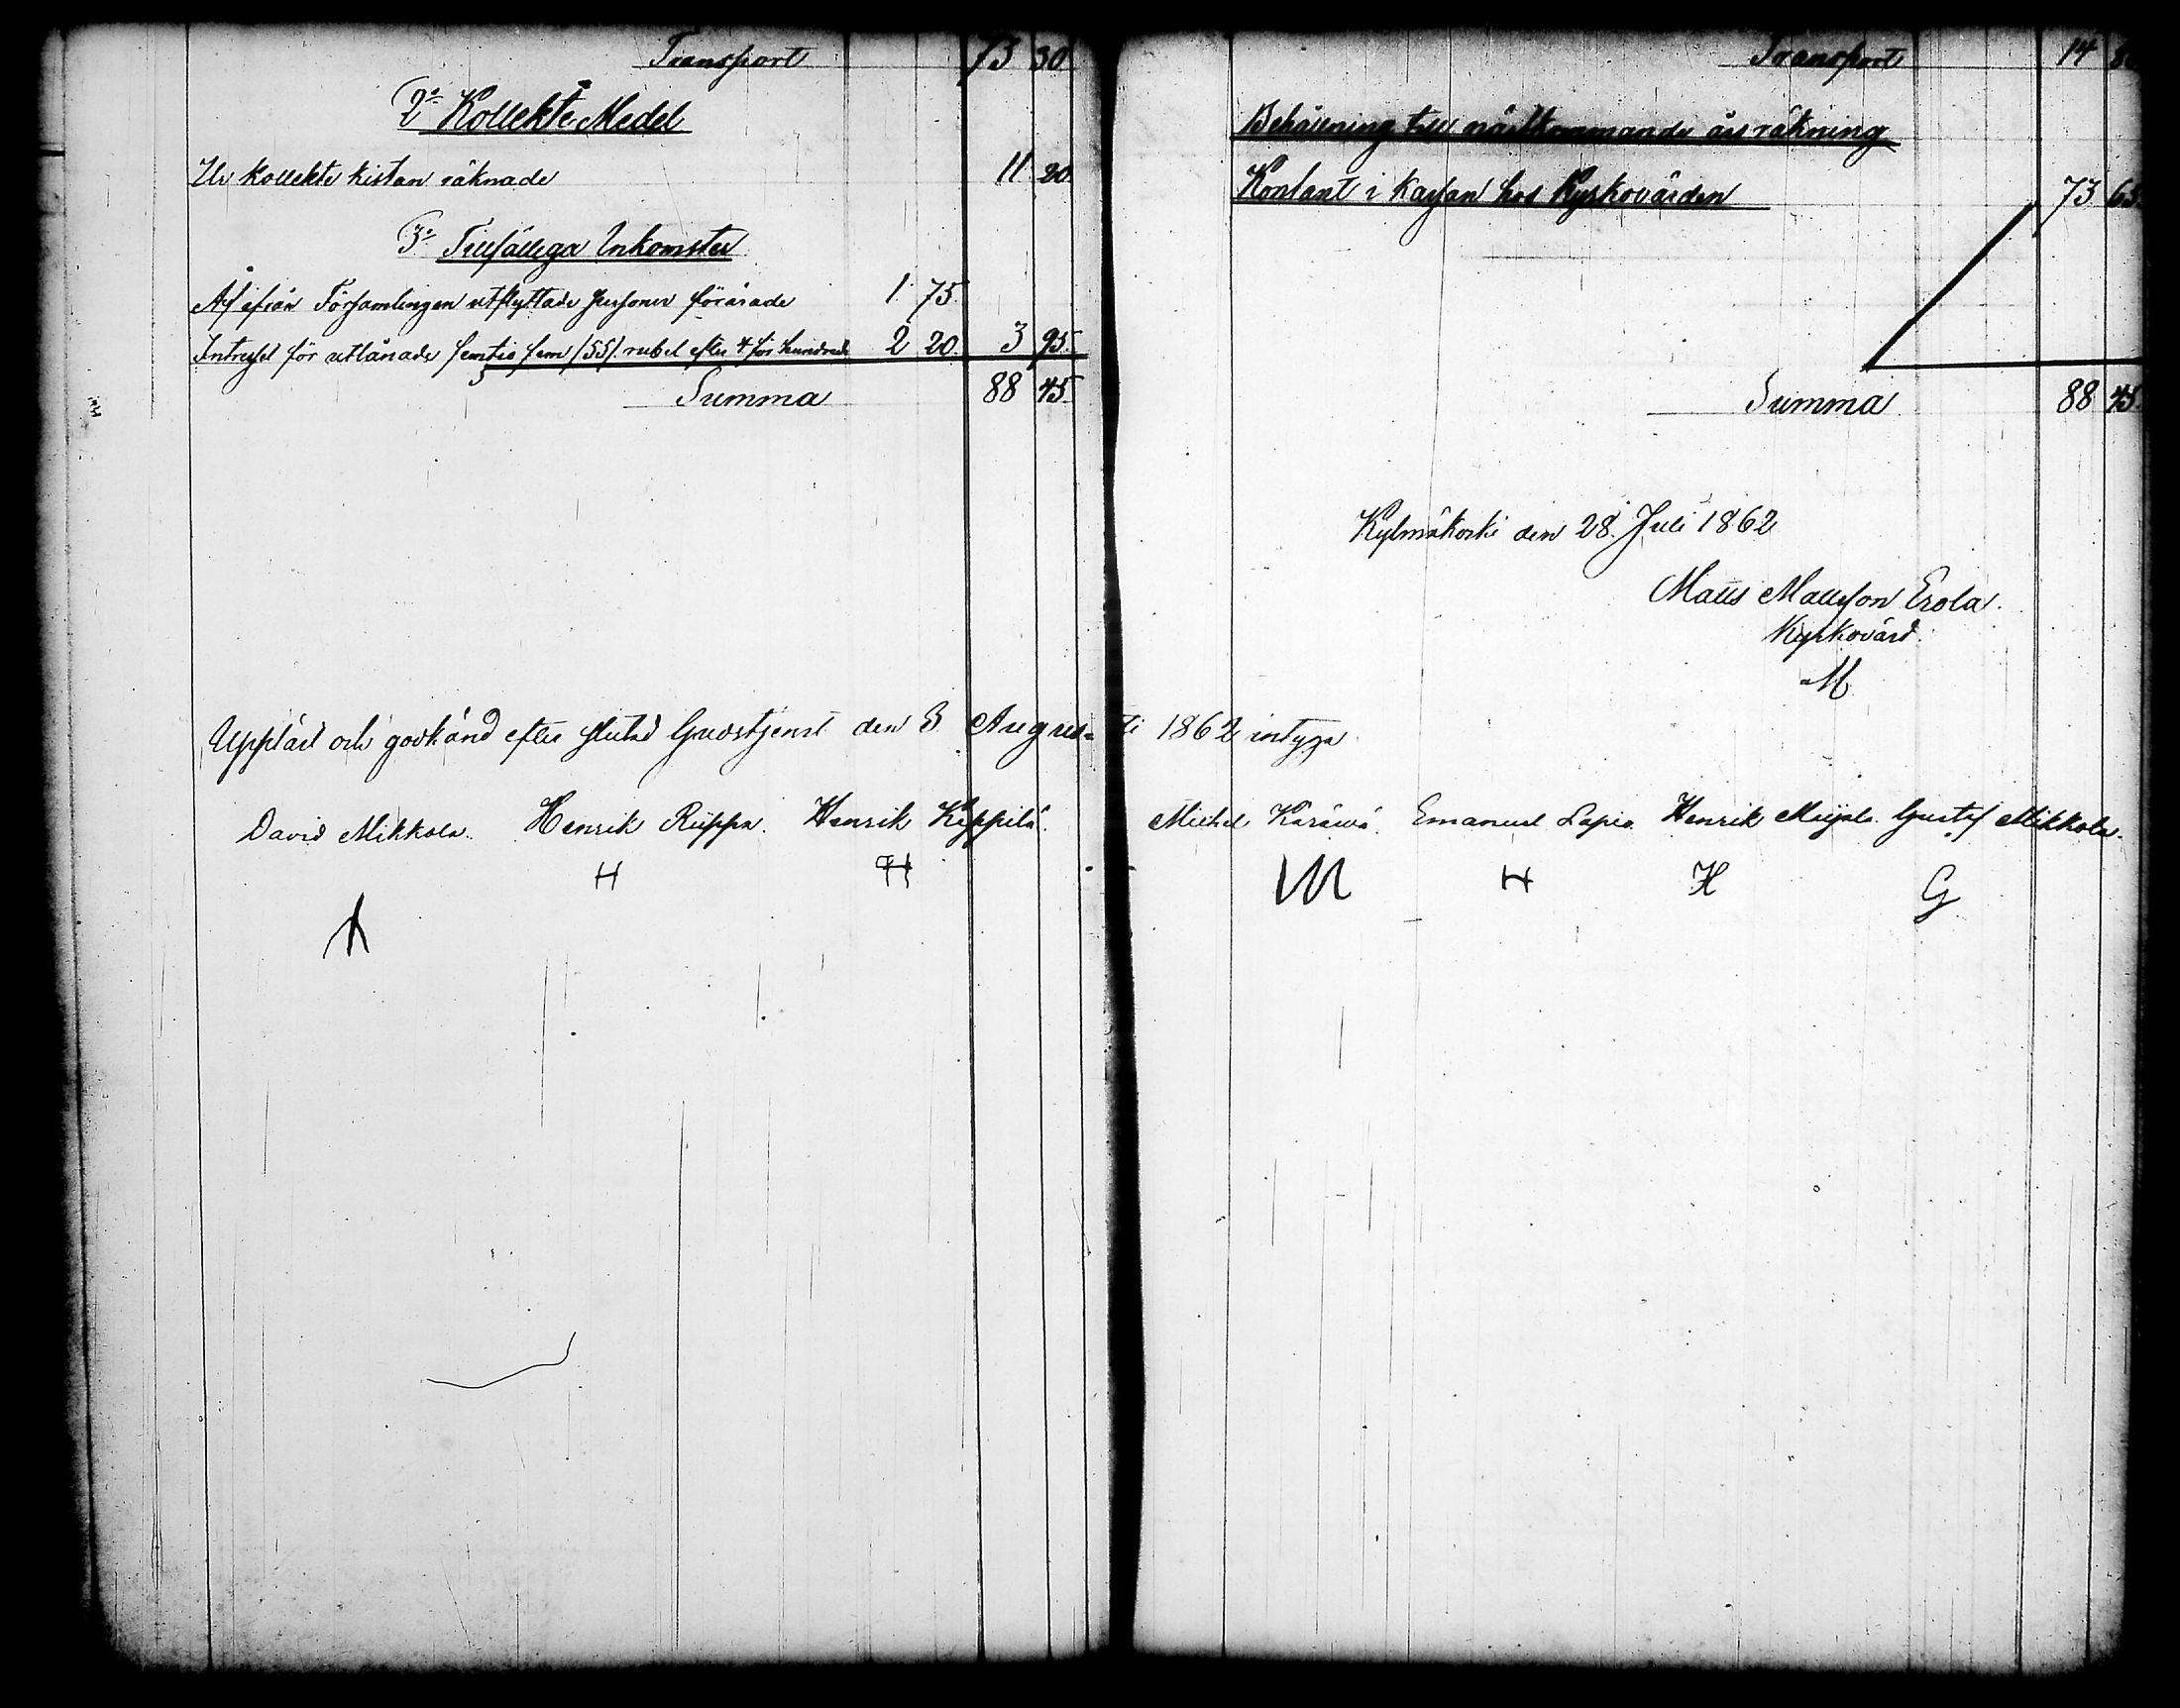 Transport 73 30
2o Kollekte Medel
Ur Kollekte kistan räknade 11 20.
3o Tillfällega Inkomster
Af ifrån Församlingen utflyttade personer förärade 1. 75.
Intresset för utlånade femtio fem /55/. rubel efter 4 för hundrade 2 20. 3 95.
Summa 88 45.
Transport 14
Behållning till nästkommande års räkning
Kontant i Kassan hos Kyrkovärden 73 65.
Summa 88 45.
Kylmäkoski den 28. Juli 1862
Matts Mattsson Erola.
Kyrkovärd.
M
Uppläst och godkänd efter slutad Gudstjenst den 3 Augus=ti 1862 intyga
David Mikkola. Henrik Riippa. Henrik Keppilä. Michel Emanuel Henrik Gustaf Mikkola.
H H M H H G